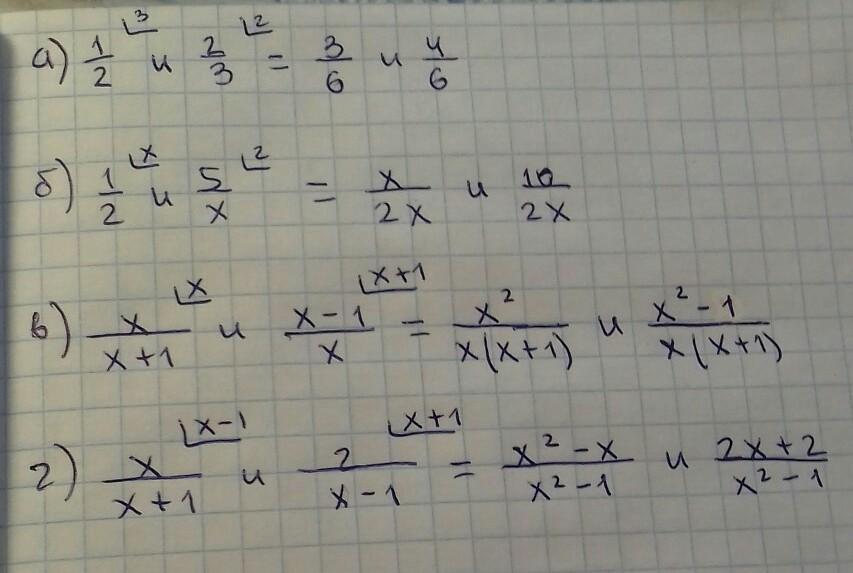 а) 1/2 ⌊3 и 2/3 ⌊2 = 3/6 и 4/6
б) 1/2 ⌊x и 5/x ⌊2 = x/2x и 10/2x
в) x/(x+1) ⌊x и (x-1)/x ⌊x+1 = x²/x(x+1) и (x²-1)/x(x+1)
г) x/(x+1) ⌊x-1 и 2/(x-1) ⌊x+1 = (x²-x)/(x²-1) и (2x+2)/(x²-1)